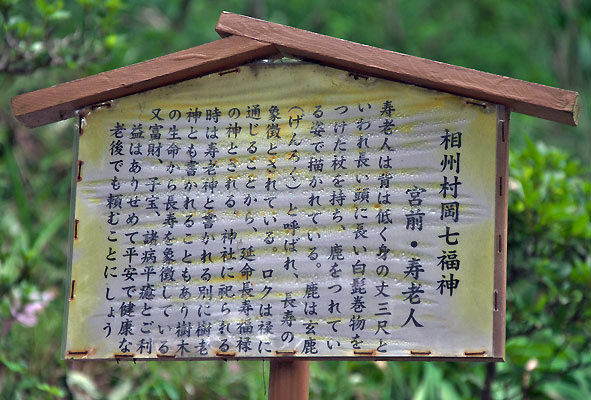 相州村岡七福神
宮前・寿老人
寿老人は背は低く身の丈三尺と
いわれ長い頭に長い白髭巻物を
つけた杖を持ち、鹿をつれてい
る姿で描かれている。鹿は玄鹿
(げんろく)と呼ばれ、長寿の
象徴とされている。ロクは禄に
通じることから、延命長寿福禄
の神とされる。神社に祀られる
時は寿老神と書かれる別に樹老
神とも書かれることもあり樹木
の生命から長寿を象徴している
又富財、子宝、諸病平癒とご利
益はありせめて平安で健康な
老後でも頼むことにしょう